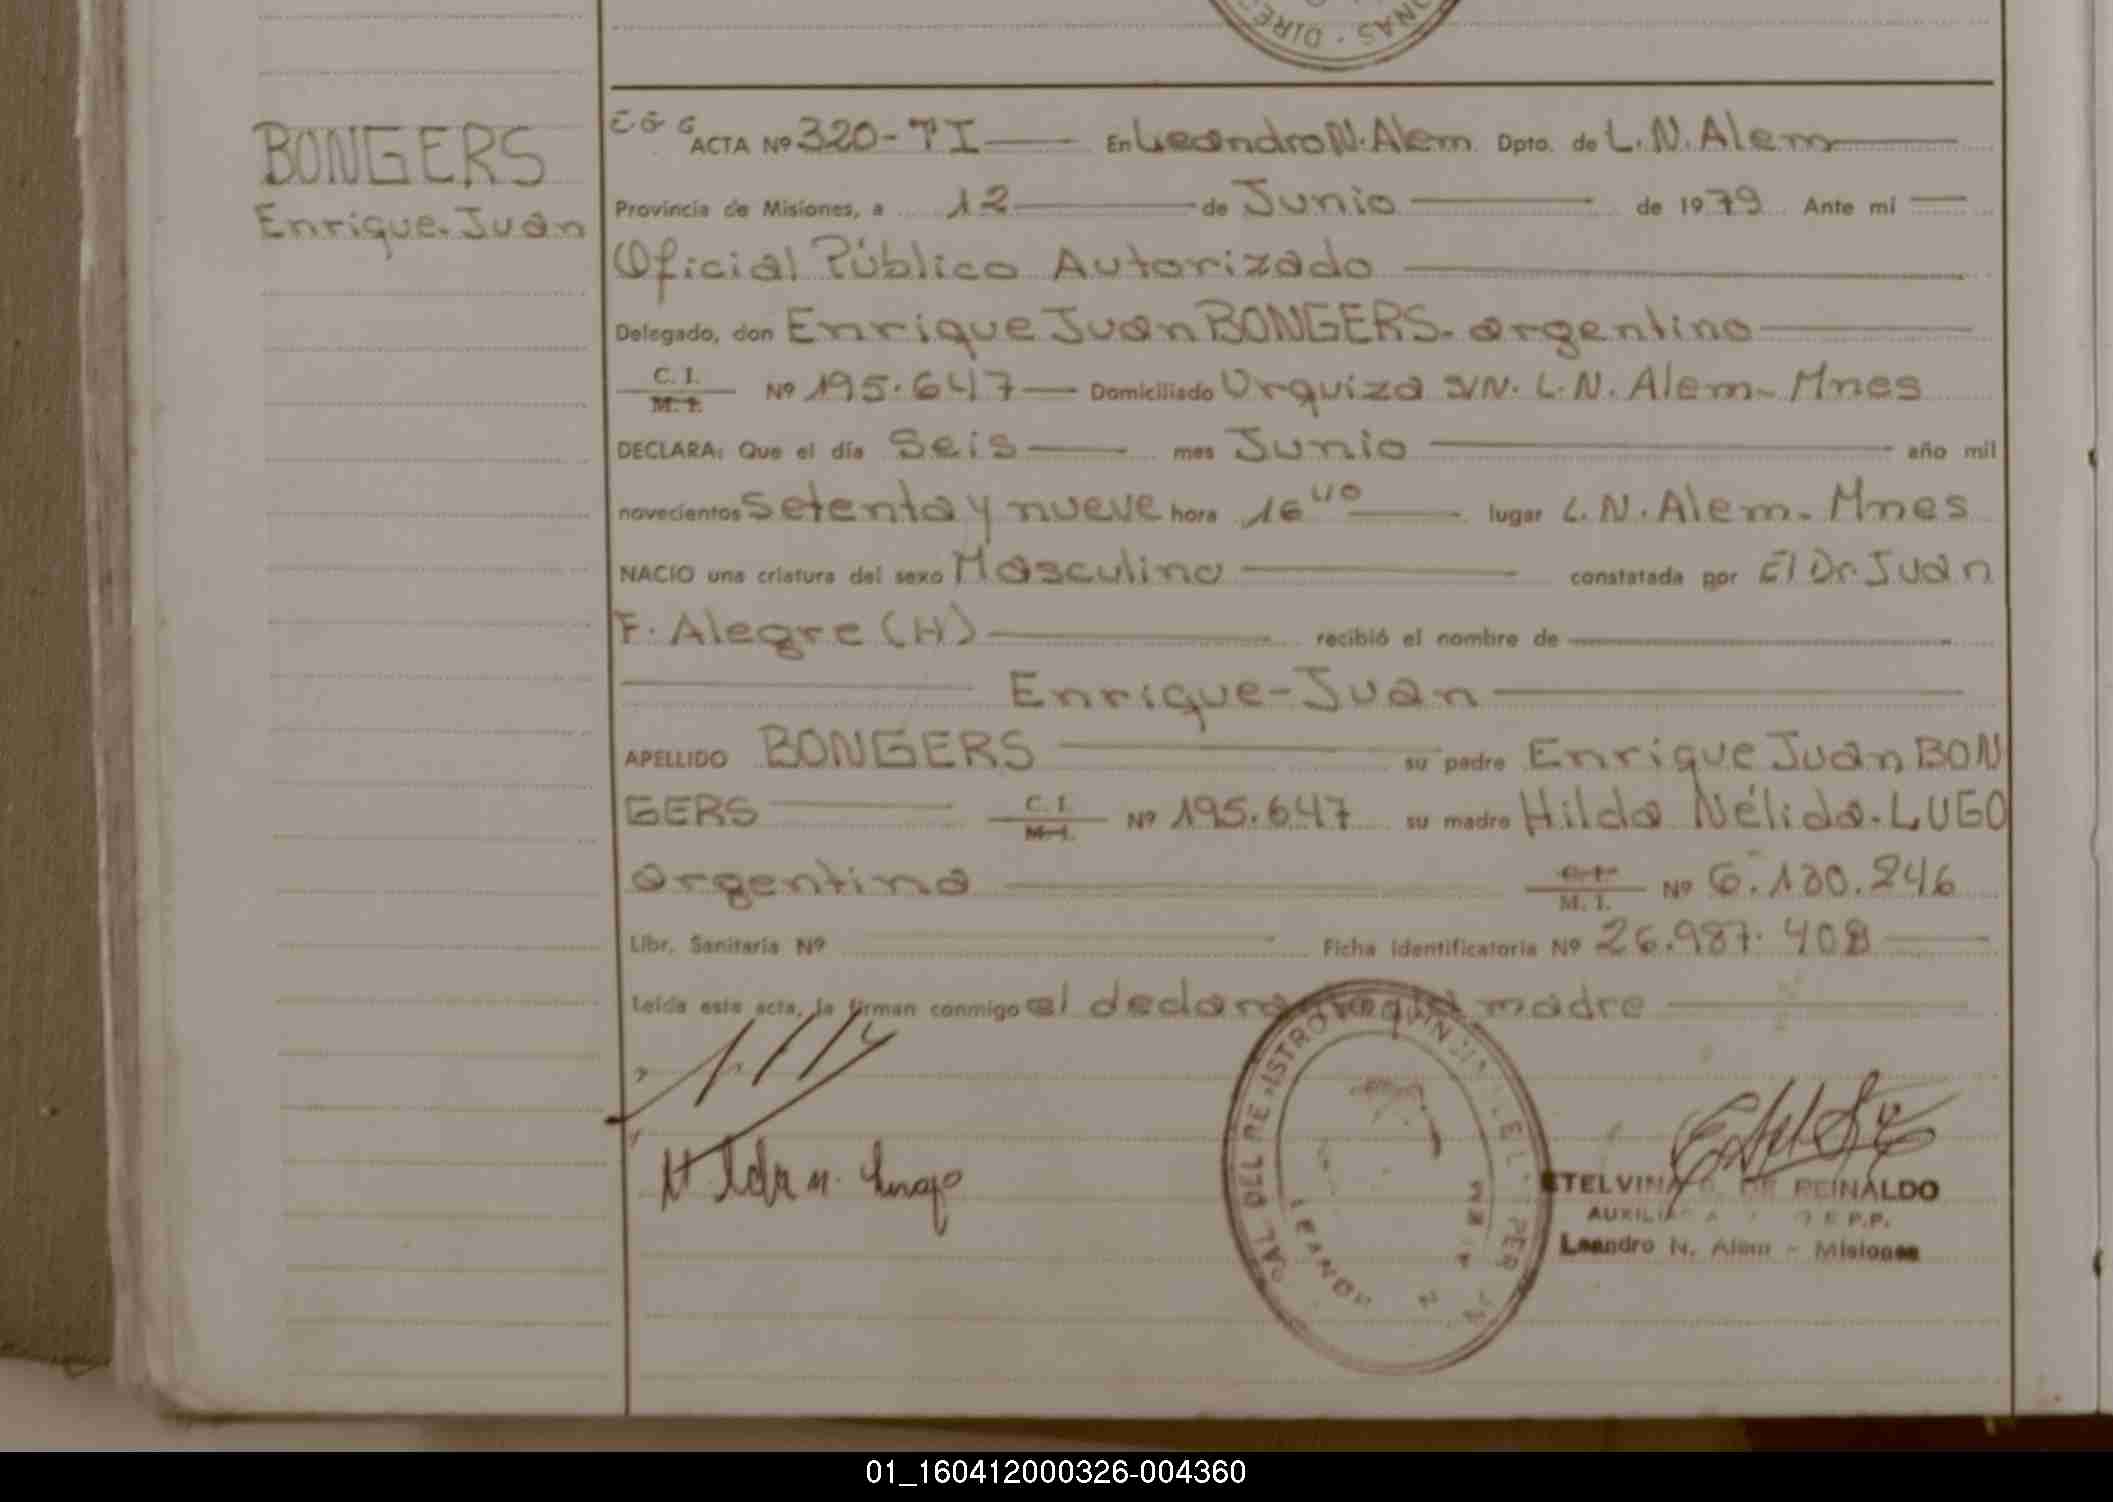 NAS · DIRE
BONGERS
Enrique. Juan
ACTA Nº 320-TI En Leandro N. Alem Dpto. de L. N. Alem
Provincia de Misiones, a 12 de Junio de 1979 Ante mí
Oficial Público Autorizado
Delegado, don Enrique Juan BONGERS. argentino
C. I.
M. I. Nº 195.647 Domiciliado Urquiza S/N. L. N. Alem - Mnes
DECLARA: Que el día Seis mes Junio año mil
novecientos setenta y nueve hora 16 40 lugar L. N. Alem - Mnes
NACIO una criatura del sexo Masculino constatada por El Dr. Juan
F. Alegre (H) recibió el nombre de
Enrique-Juan
APELLIDO BONGERS su padre Enrique Juan BON
GERS C. I.
M. I. Nº 195.647 su madre Hilda Nélida. LUGO
argentina C. I.
M. I. Nº 6.180.246
Libr. Sanitaria Nº Ficha identificatoria Nº 26.987.408
Leída este acta, la firman conmigo el declarante y la madre
Hilda N. Lugo
ETELVINA DE REINALDO
Leandro N. Alem - Misiones
01_160412000326-004360